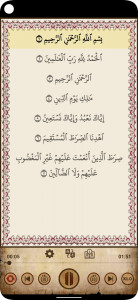 بِسْمِ اللَّهِ الرَّحْمَٰنِ الرَّحِيمِ ۝١
الْحَمْدُ لِلَّهِ رَبِّ الْعَالَمِينَ ۝٢
الرَّحْمَٰنِ الرَّحِيمِ ۝٣
مَالِكِ يَوْمِ الدِّينِ ۝٤
إِيَّاكَ نَعْبُدُ وَإِيَّاكَ نَسْتَعِينُ ۝٥
اهْدِنَا الصِّرَاطَ الْمُسْتَقِيمَ ۝٦
صِرَاطَ الَّذِينَ أَنْعَمْتَ عَلَيْهِمْ غَيْرِ الْمَغْضُوبِ
عَلَيْهِمْ وَلَا الضَّالِّينَ ۝٧
00:05
01:51